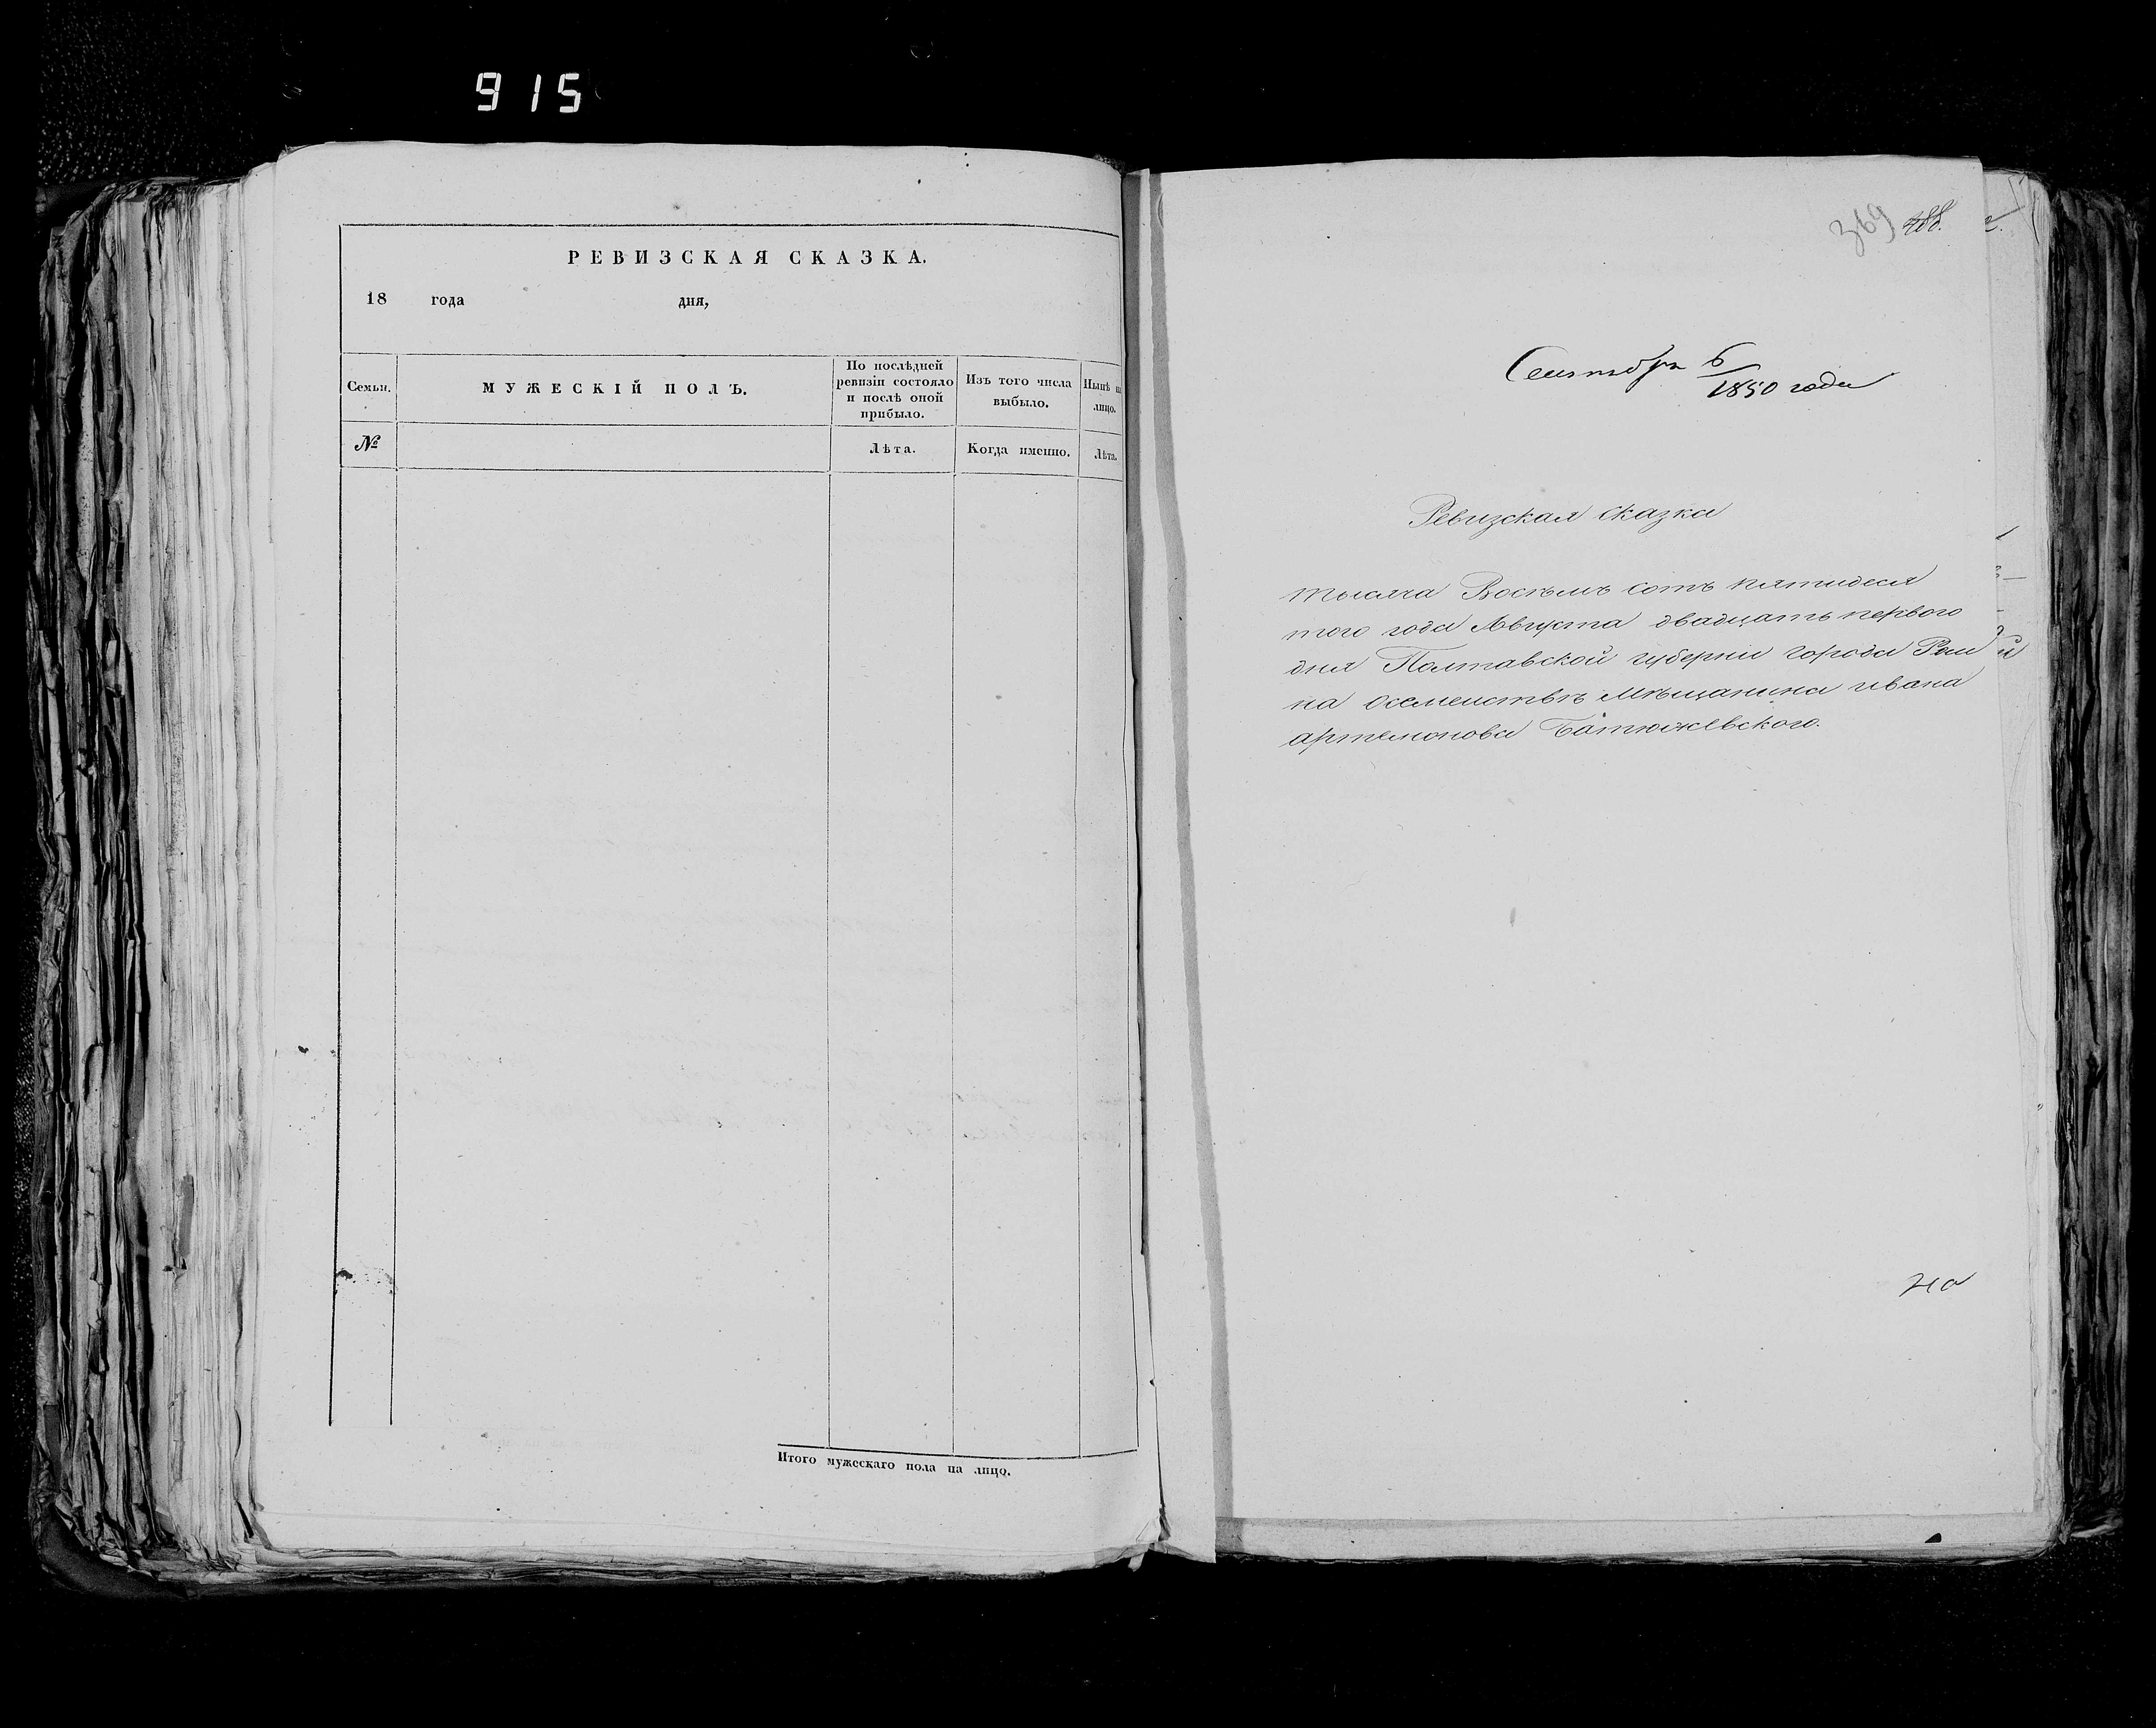 915
РЕВИЗСКАЯ СКАЗКА.
18 года дня,
Семьи.
МУЖЕСКІЙ ПОЛЪ.
По послѣдней ревизіи состояло и послѣ оной прибыло.
Изъ того числа выбыло.
Нынѣ на лицо.
№
Лѣта.
Когда именно.
Лѣта.
Итого мужескаго пола на лицо.
369 488.
Сентября 6
1850 года
Ревизская сказка
тысяча Восемъ сотъ пятидеся
того года Августа двадцать первого
дня Полтавской губерніи города
на осемействѣ Мѣщанина ивана
артемонова Батюжевского.